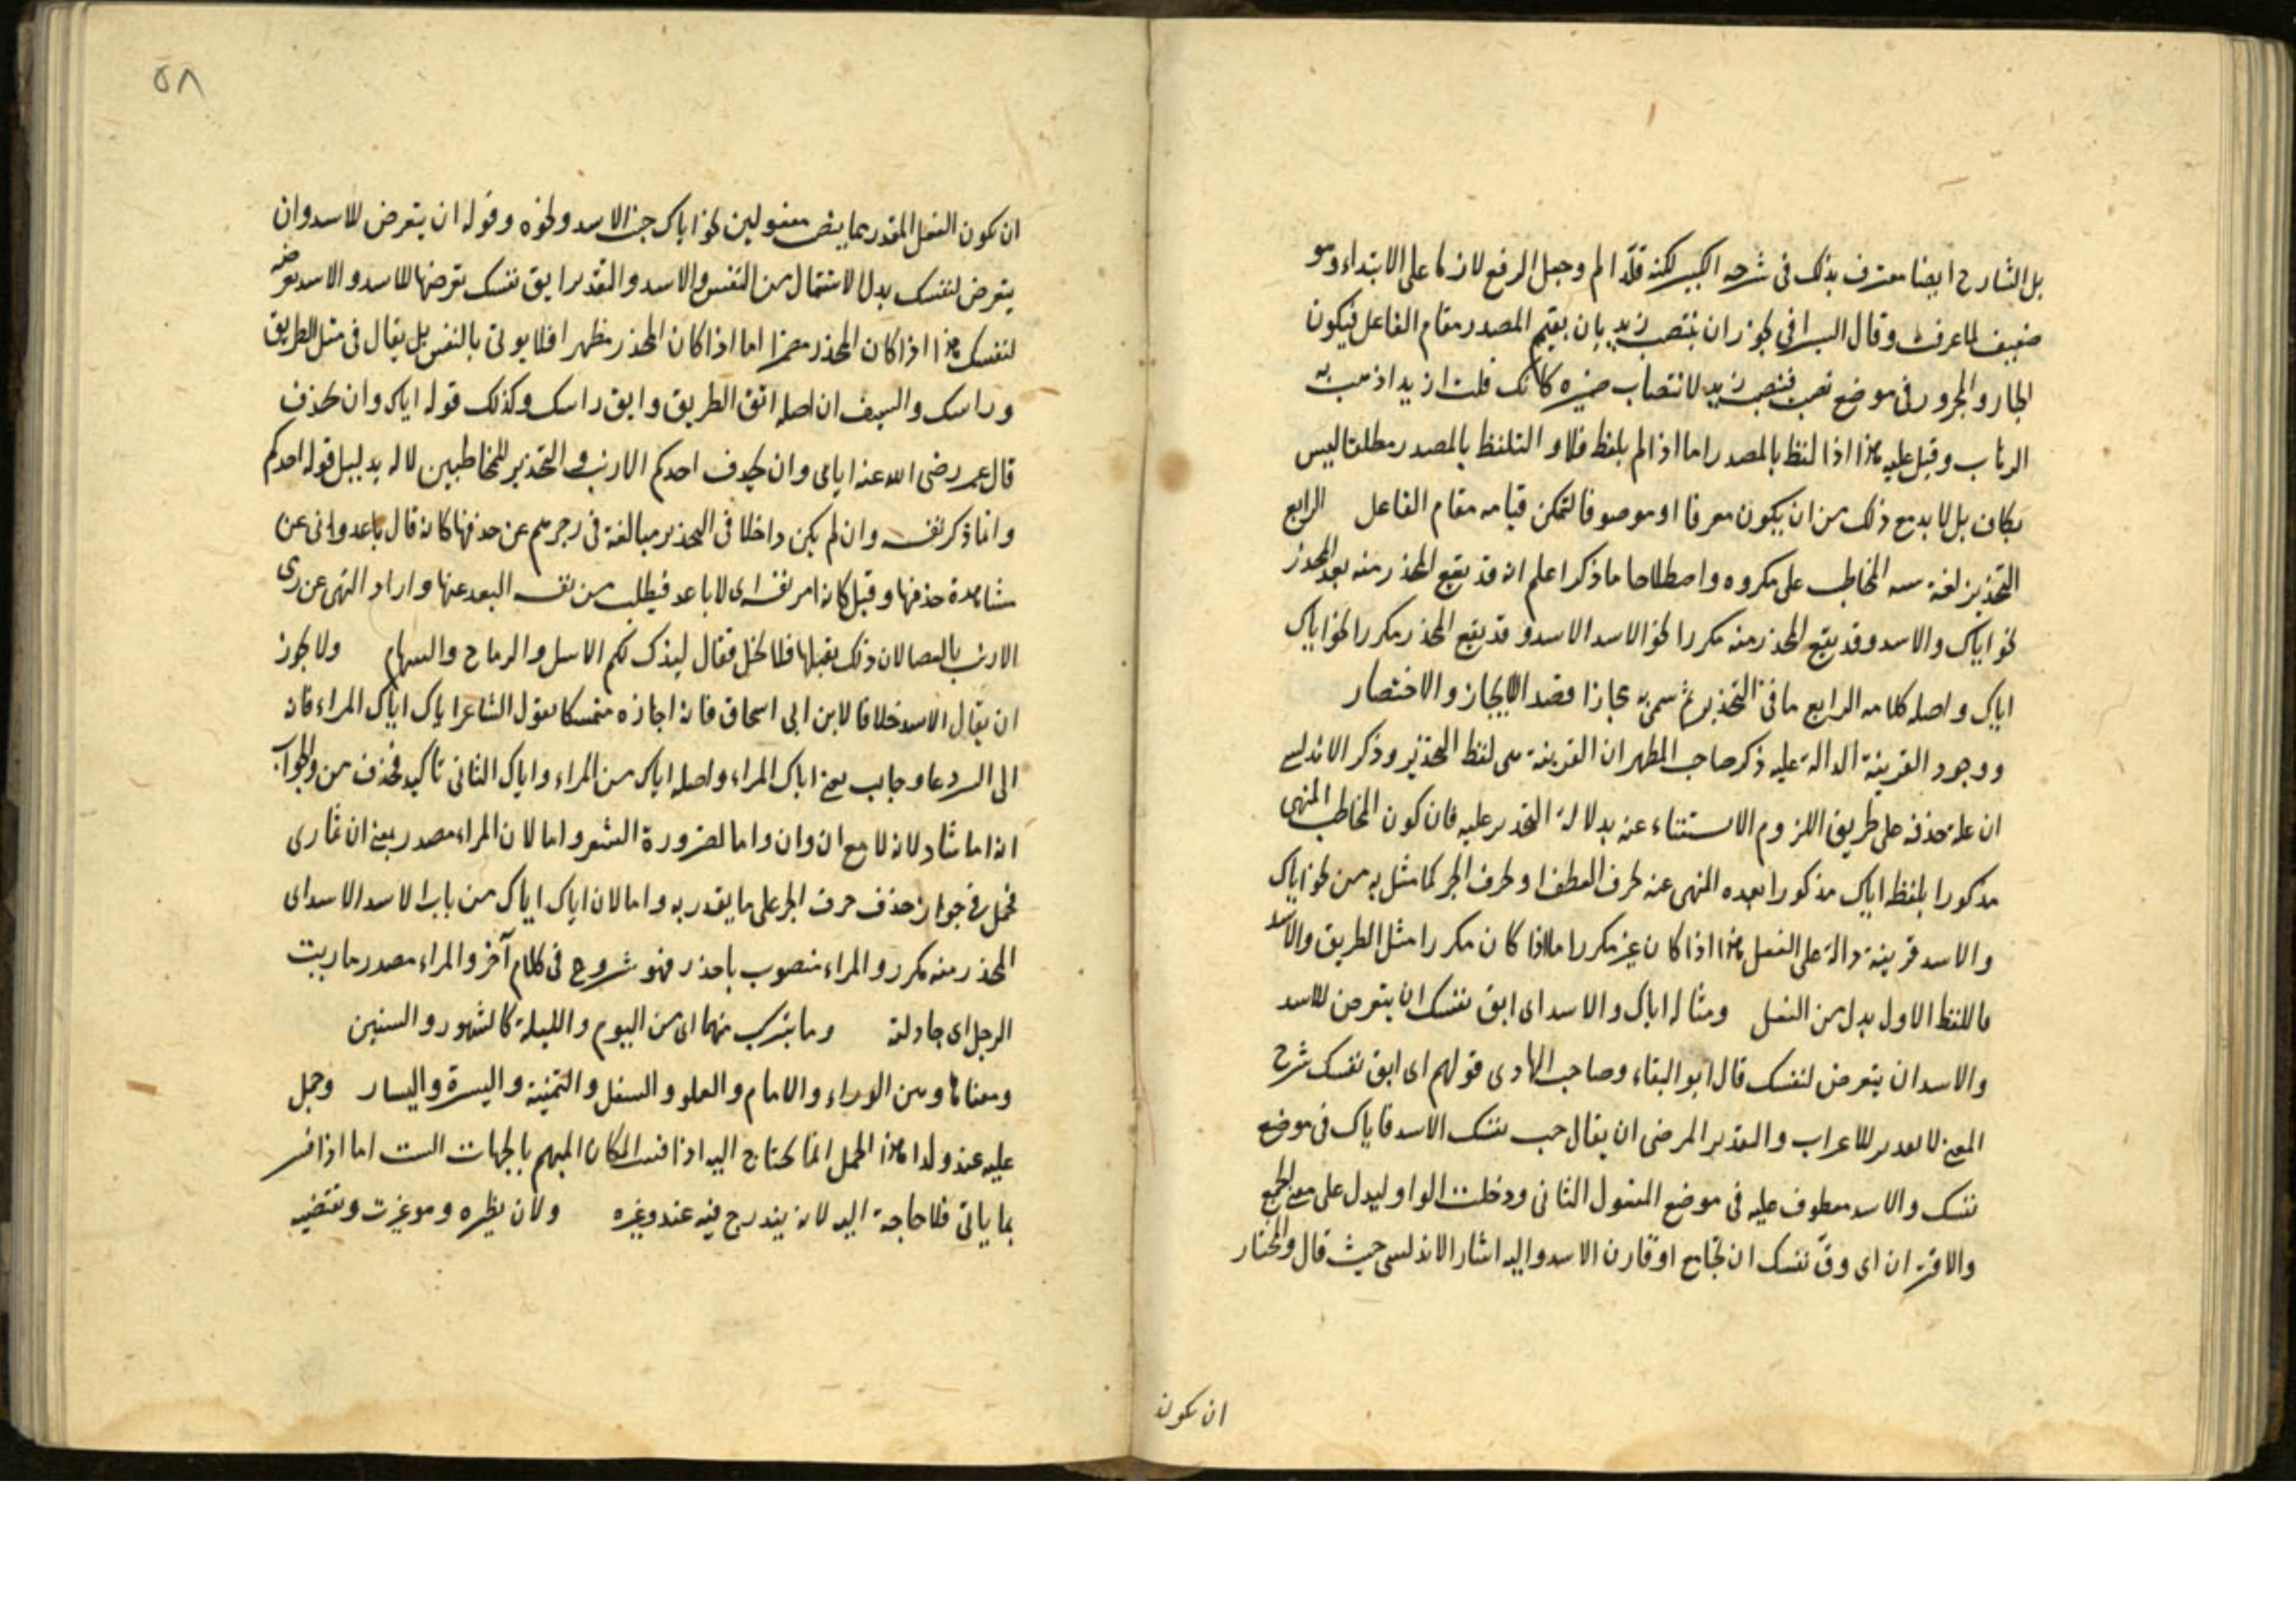 بل الشارح ايضا معترف بذلك فى شرحه الكبير لكنه قلّد الم وجعل الرفع لازما على الابتداء وهو
ضعيف لما عرفت وقال السيرافى يجوز ان ينتصب زيد بان يقيم المصدر مقام الفاعل فيكون
الجار والمجرور فى موضع نصب فينتصب زيد لانتصاب ضميره كانك قلت ازيد اذهب به
الذهاب وقيل عليه هذا اذا لفظ بالمصدر اما اذا لم يلفظ فلا و التلفظ بالمصدر مطلقا ليس
بكاف بل لا بد مع ذلك من ان يكون معرفا او موصوفا لتمكن قيامه مقام الفاعل الرابع
التحذير لغة المخاطب على مكروه واصطلاحا ما ذكر اعلم انه قد يقع المحذر منه بعد المحذر
نحو اياك والاسد وقد يقع المحذر منه مكررا نحو الاسد الاسد وقد يقع المحذر مكررا نحو اياك
اياك واصله كلامه الرابع ما فى التحذير ثم سمى به مجازا قصد الايجاز والاختصار
ووجود القرينة الدالة عليه ذكر صاحب المظهر ان القرينة هى لفظ التحذير وذكر الاندلسى
ان علة حذفه على طريق اللزوم الاستغناء عنه بدلالة التحذير عليه فان كون المخاطب المنهى
مذكورا بلفظ اياك مذكورا بعده المنهى عنه بحرف العطف او بحرف الجر كما مثل به من نحو اياك
والاسد قرينة دالة على الفعل هذا اذا كان غير مكرر اما اذا كان مكررا مثل الطريق والاسد
فاللفظ الاول بدل من الفعل ومثاله اياك والاسد اى ابق نفسك ان يتعرض للاسد
والاسد ان يتعرض لنفسك قال ابو البقاء وصاحب الهادى قولهم اى ابق نفسك شرح
المعنى لا تقدير للاعراب والتقدير المرضى ان يقال جنب نفسك الاسد فاياك فى موضع
نفسك والاسد معطوف عليه فى موضع المفعول الثانى ودخلت الواو ليدل على معنى الجمع
والاقتران اى وقّ نفسك ان تجامع او تقارن الاسد واليه اشار الاندلسى حيث قال والمختار
ان يكون
٥٨
ان يكون الفعل المقدر مما ينصب مفعولين نحو اياك جنب الاسد ونحوه وقوله ان يتعرض للاسد وان
يتعرض لنفسك بدل الاشتمال من النفس والاسد والتقدير ابق نفسك تعرضها للاسد والاسد تعرضه
لنفسك هذا اذا كان المحذر مضمرا اما اذا كان المحذر مظهرا فلا يوتى بالنفس بل يقال فى مثل الطريق
وراسك والسيف ان اصله اتق الطريق وابق راسك وكذلك قوله اياك وان تحذف
قال عمر رضى الله عنه اياى وان يحذف احدكم الارنب والتحذير للمخاطبين لا له بدليل قوله احدكم
وانما ذكر نفسه وان لم يكن داخلا فى التحذير مبالغة فى زجرهم عن حذفها كانه قال باعدونى عن
مشاهدة حذفها وقيل كانه امر نفسه اى لاباعد فيطلب من نفسه البعد عنها واراد النهى عن رمى
الارنب بالعصا لان ذلك يقتلها فلا تحل فقال ليذك لكم الاسل والرماح والسهام ولا يجوز
ان يقال الاسد خلافا لابن ابى اسحاق فانه اجازه متمسكا بقول الشاعر اياك اياك المراء فانه
الى الشر دعاء وجالب يعنى اياك المراء واصله اياك من المراء واياك الثانى تاكيد فحذف من والجواب
انه اما شاذ لانه لا مع ان وان واما لضرورة الشعر واما لان المراء مصدر بمعنى ان تمارى
فحمل فى جواز حذف حرف الجر على ما يقدر به واما لان اياك اياك من باب الاسد الاسد اى
المحذر منه مكرر والمراء منصوب باحذر فهو شروع فى كلام آخر والمراء مصدر ماريت
الرجل اى جادلته وما يترتب منهما اى من اليوم والليلة كالشهور والسنين
ومعناها ومن الوراء والامام والعلو والسفل واليمنة واليسرة واليسار وحمل
عليه عند ولدا هذا الحمل انما يحتاج اليه اذا فسر المكان المبهم بالجهات الست اما اذا فسر
بما ياتى فلا حاجة اليه لانه يندرج فيه عند وغيره ولان نظيره وهو غيرت ونقيضه